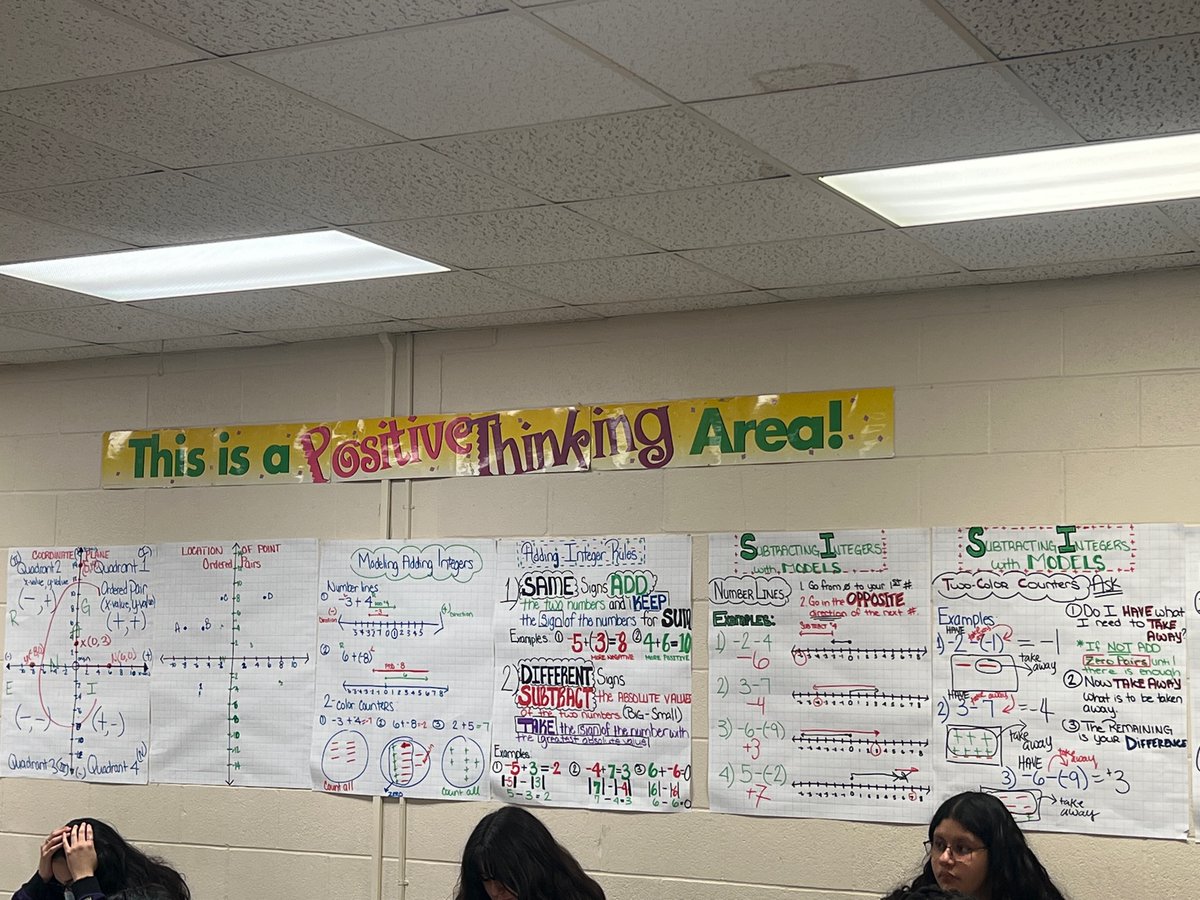 This is a Positive Thinking Area!
COORDINATE PLANE
Quadrant 2
(x-value, y-value)
(-, +)
Quadrant 1
Ordered Pair
(x-value, y-value)
(+, +)
R
G
x(0,3)
N(6,0)
E
I
(-, -)
(+, -)
Quadrant 3
Quadrant 4
LOCATION OF POINT
Ordered Pairs
A
B
C
D
Modeling Adding Integers
Number lines
-3+4
2
6+(-8)
2-color counters
① -3+4=
② 6+-8=-2
③ 2+5=7
Count all
ZERO
Count all
Adding Integer Rules
1) SAME Signs ADD
the two numbers and KEEP
the Sign of the numbers for SUM
Examples: ① -5+(-3)=-8 ② 4+6=10
MORE NEGATIVE MORE POSITIVE
2) DIFFERENT Signs
SUBTRACT the ABSOLUTE VALUES
of the two numbers (BIG-Small)
TAKE the sign of the number with
the greatest absolute value
Examples:
① -5+3=-2 ② -4+7=3 ③ 6+-6=0
|-5|-|3| |7|-|-4| |6|-|-6|
5-3=2 7-4=3 6-6=0
SUBTRACTING INTEGERS
with MODELS
NUMBER LINES
1. Go from 0 to your 1st #
2. Go in the OPPOSITE
direction of the next #.
EXAMPLES:
SUBTRACT 4
1) -2-4
-6
2) 3-7
-4
3) -6-(-9)
+3
4) 5-(-2)
+7
SUBTRACTING INTEGERS
with MODELS
TWO-COLOR COUNTERS
Ask
Examples
HAVE take away
1) -2-(-1)=-1
take away
HAVE take away
2) 3-7=-4
take away
take away
3) -6-(-9)=+3
take away
① DO I HAVE what
I need to TAKE
AWAY?
*If NOT ADD
Zero Pairs until
there is enough
② Now TAKE AWAY
what is to be taken
away.
③ The REMAINING
is your DIFFERENCE